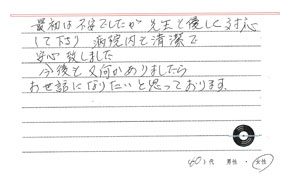 最初は不安でしたが 先生も優しく対応
して下さり 病院内も清潔で
安心致しました
今後も又何かありましたら
お世話になりたいと思っております。
60才代 男性 ・ 女性